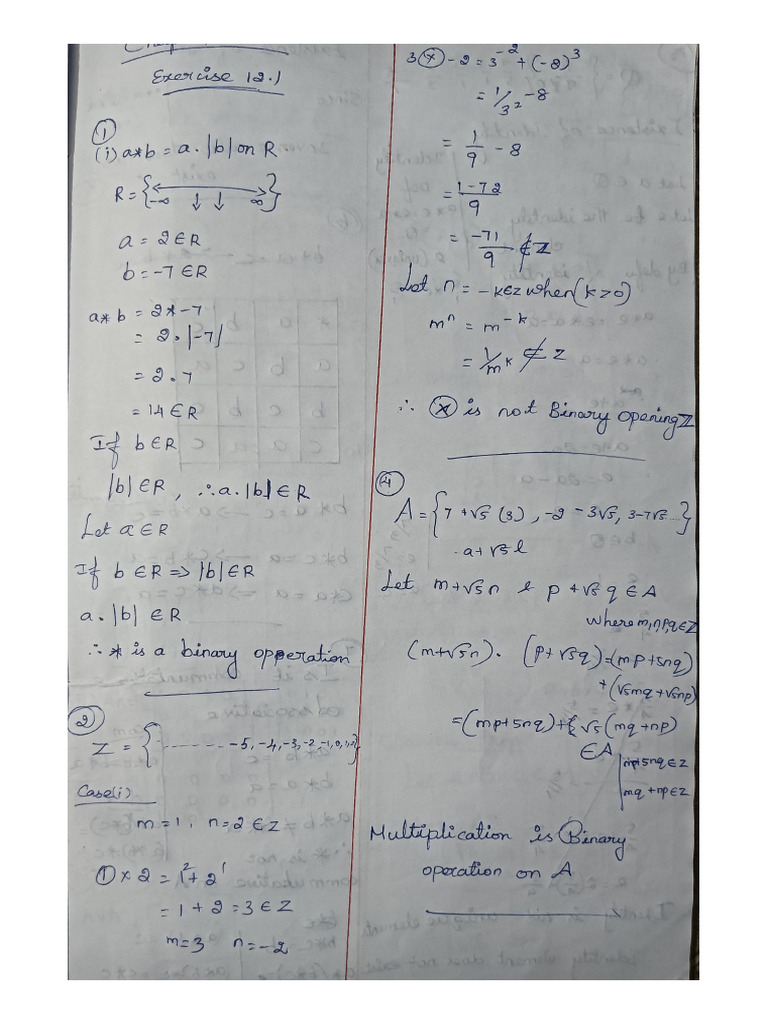 Exercise 12.1
①
(i) a*b = a. |b| on R
R = { -∞ ↓ ↓ ∞ }
a = 2 ∈ R
b = -7 ∈ R
a * b = 2 * -7
= 2 . |-7|
= 2 . 7
= 14 ∈ R
If b ∈ R
|b| ∈ R , ∴ a. |b| ∈ R
Let a ∈ R
If b ∈ R ⇒ |b| ∈ R
a. |b| ∈ R
∴ * is a binary opperation
②
Z = { ........ -5, -4, -3, -2, -1, 0, 1, 2 }
Case(i)
m = 1, n = 2 ∈ Z
① × 2 = 1² + 2¹
= 1 + 2 = 3 ∈ Z
m = 3 n = -2
3 ⊛ -2 = 3⁻² + (-8)³
= 1/3² - 8
= 1/9 - 8
= 1-72/9
= -71/9 ∉ Z
Let n = -k ∈ z when (k > 0)
mⁿ = m⁻ᵏ
= 1/mᵏ ∉ Z
∴ ⊛ is not Binary opening Z
④
A = { 7 + √5 (3) , -2 - 3√5, 3 - 7√5 ... }
a + √5 b
Let m + √5 n & p + √5 q ∈ A
where m, n, p, q ∈ Z
(m + √5 n) . (p + √5 q) = (mp + 5nq)
+ (√5 mq + √5 np)
= (mp + 5nq) + √5 (mq + np)
∈ A
mp+5nq ∈ z
mq + np ∈ z
Multiplication is Binary
operation on A